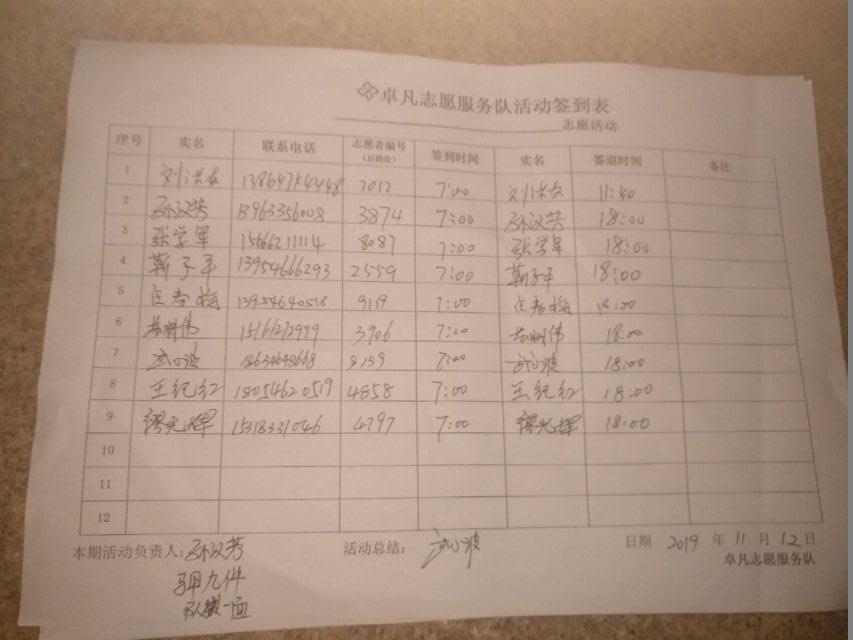 卓凡志愿服务队活动签到表
志愿活动
序号 实名 联系电话 志愿者编号（后四位） 签到时间 实名 签退时间 备注
1 7017 7:00 11:40
2 孙汉芳 13963356008 3874 7:00 孙汉芳 18:00
3 张学军 15666211114 8087 7:00 张学军 18:00
4 靳子平 13954666293 2559 7:00 靳子平 18:00
5 任春梅 13954640518 9119 7:00 任春梅 18:00
6 3906 7:00 18:00
7 7:00 18:00
8 王纪红 18054620519 4858 7:00 王纪红 18:00
9 缪光辉 15318331046 4797 7:00 缪光辉 18:00
10
11
12
本期活动负责人：孙汉芳 活动总结： 日期 2019 年 11 月 12 日
九件 卓凡志愿服务队
一面